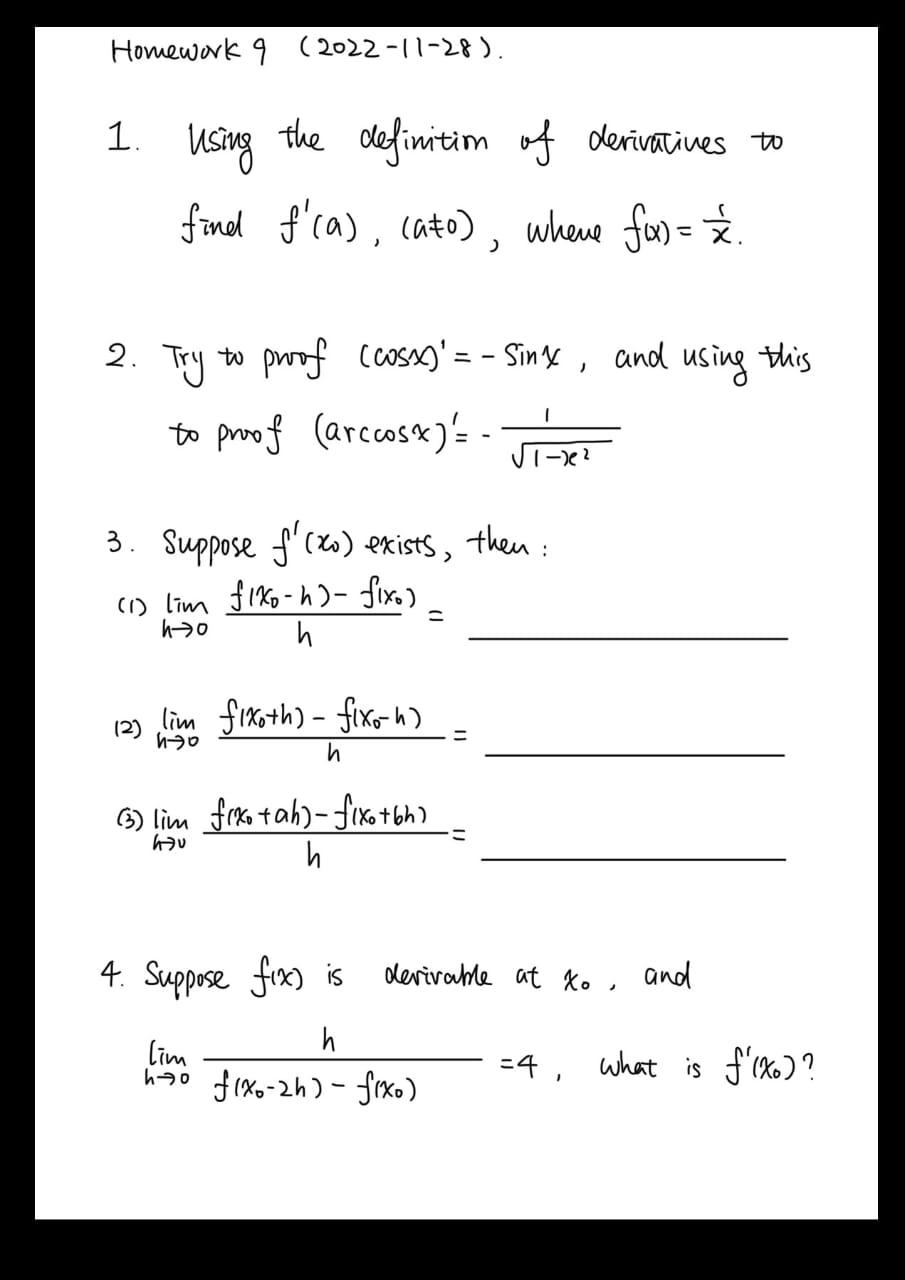 Homework 9 (2022-11-28).
1. Using the definition of derivatives to
find f'(a), (a≠0), where f(x) = 1/x.
2. Try to proof (cosx)' = - sinx, and using this
to proof (arccosx)' = - 1/√(1-x²)
3. Suppose f'(x₀) exists, then :
(1) lim h→0 (f(x₀-h) - f(x₀))/h =
(2) lim h→0 (f(x₀+h) - f(x₀-h))/h =
(3) lim h→0 (f(x₀+ah) - f(x₀+bh))/h =
4. Suppose f(x) is derivable at x₀, and
lim h→0 h/(f(x₀-2h) - f(x₀)) = 4, what is f'(x₀)?